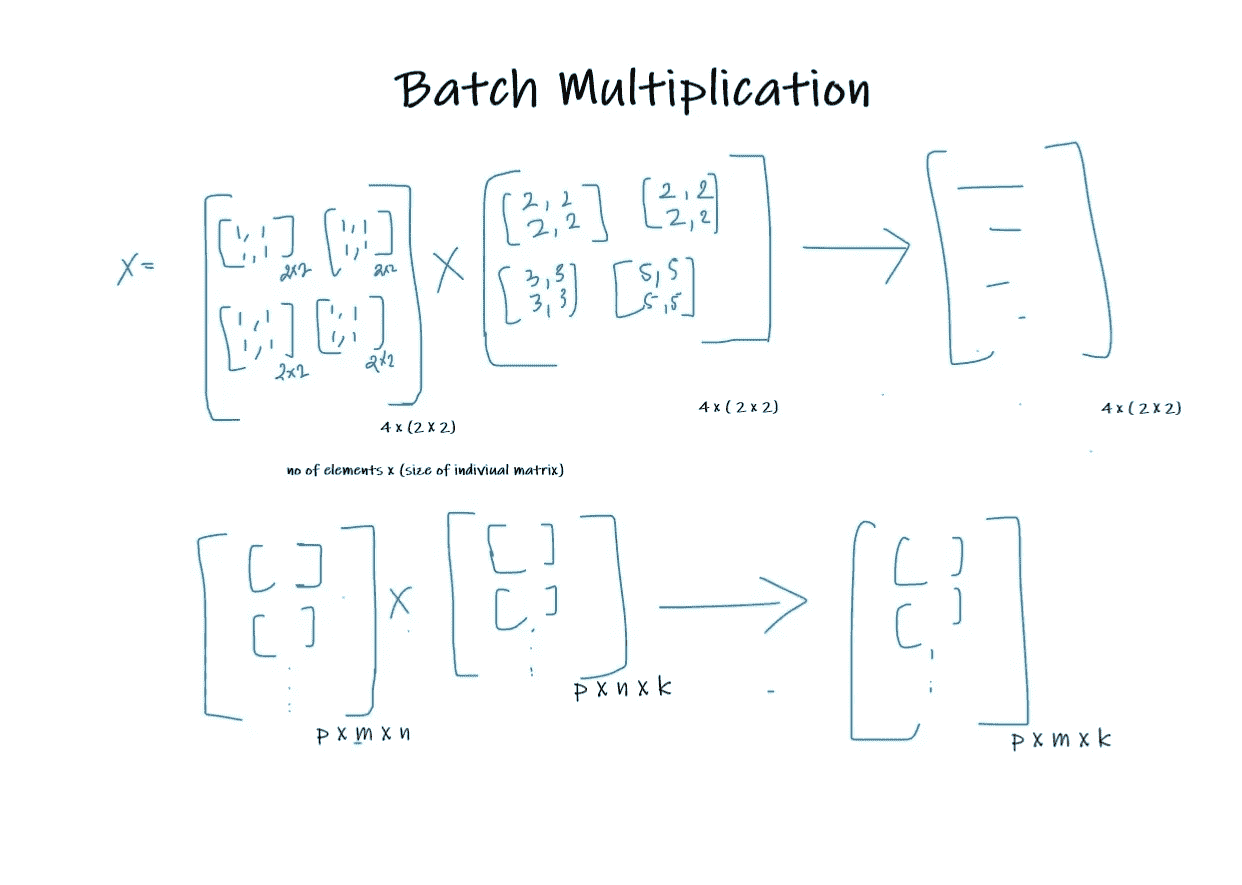 Batch Multiplication
X= [ [1,1 1,1] 2x2 [1,1 1,1] 2x2 [1,1 1,1] 2x2 [1,1 1,1] 2x2 ] X [ [2,2 2,2] [2,2 2,2] [3,3 3,3] [5,5 5,5] ] → [ ]
4 x (2 x 2)
4 x (2 x 2)
4 x (2 x 2)
no of elements x (size of indiviual matrix)
[ [ ] [ ] ⋮ ] X [ [ ] [ ] ⋮ ] → [ [ ] [ ] ⋮ ]
p x m x n
p x n x k
p x m x k